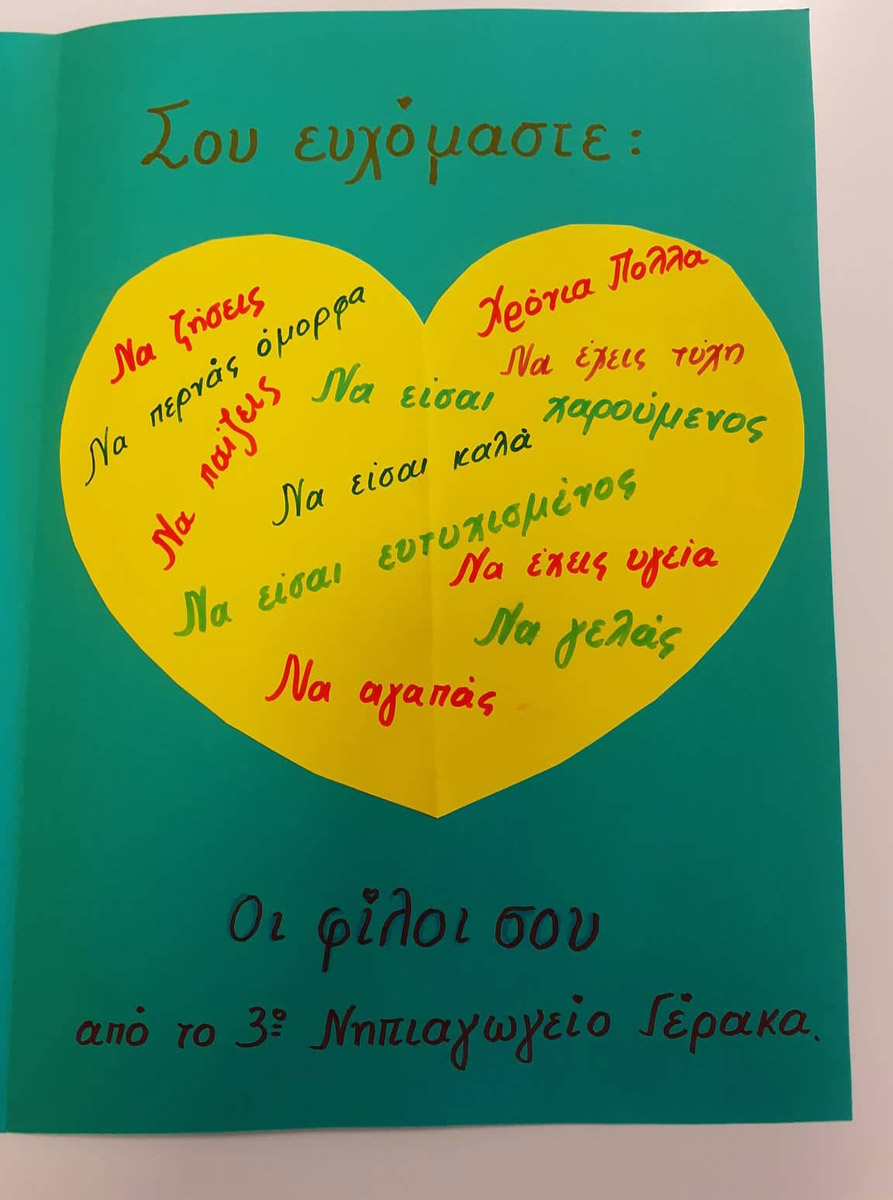 Σου ευχόμαστε:
Να ζήσεις
Χρόνια Πολλά
Να περνάς όμορφα
Να έχεις τύχη
Να παίζεις
Να είσαι χαρούμενος
Να είσαι καλά
Να είσαι ευτυχισμένος
Να έχεις υγεία
Να γελάς
Να αγαπάς
Οι φίλοι σου
από το 3º Νηπιαγωγείο Γέρακα.